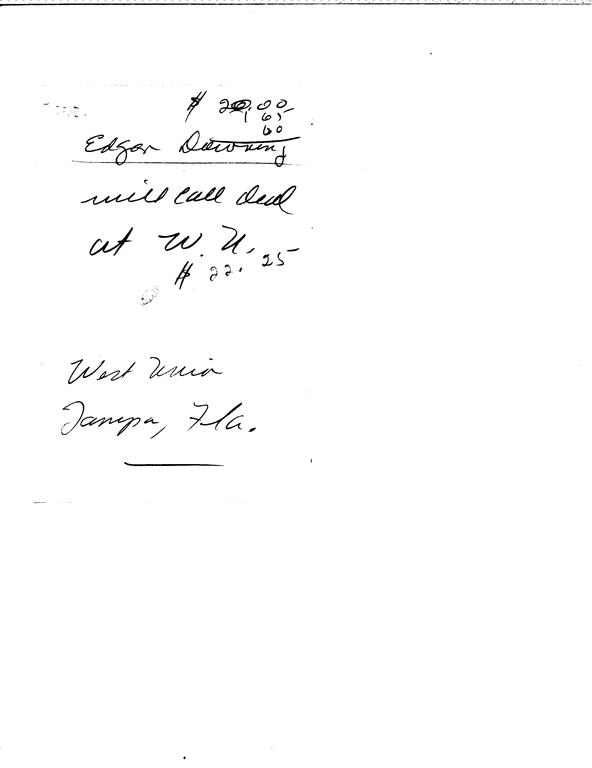 $ 20.00
1 65
60
Edgar Downing
will call
at W. U.
$ 22.25
West Union
Tampa, Fla.